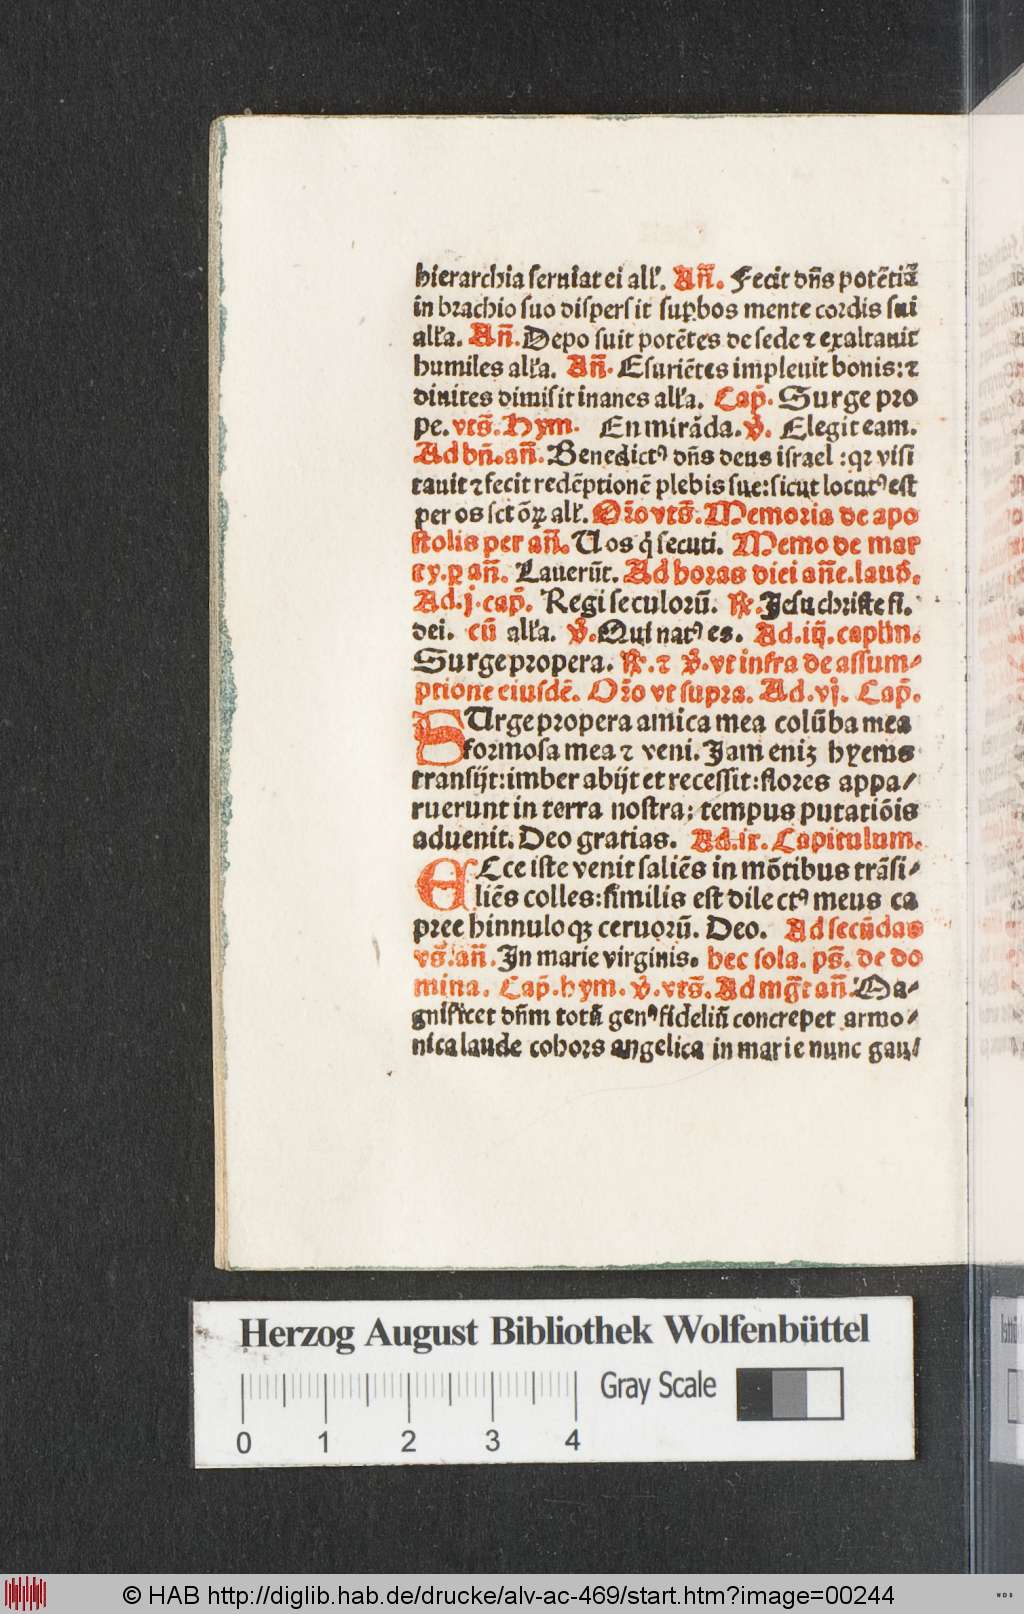 hierarchia serniat ei all'. Añ. Fecit dñs potẽtiã
in brachio suo dispersit suꝑbos mente cordis sui
all'a. Añ. Deposuit potẽtes de sede ⁊ exaltauit
humiles all'a. Añ. Esuriẽtes impleuit bonis: ⁊
diuites dimisit inanes all'a. Cap̃. Surge pro
pe. vts̃. Hym. En mirãda. ℣. Elegit eam.
Ad bñ. añ. Benedictꝰ dñs deus israel : qꝛ visi
tauit ⁊ fecit redẽptionẽ plebis sue: sicut locutꝰ est
per os sctõꝝ all'. Oꝛ̃o vts̃. Memoria de apo
stolis per añ. Uos q̃ secuti. Memo de mar
ty. ꝑ añ. Lauerũt. Ad horas diei añe. laud̃.
Ad. j. cap̃. Regi seculoꝛũ. ℟. Jesu christe fi.
dei. cũ all'a. ℣. Qui natꝰ es. Ad. iij. captm̃.
Surge propera. ℟. ⁊ ℣. vt infra de assum⸗
ptione eiusdẽ. Oꝛ̃o vt supra. Ad. vj. Cap̃.
SUrge propera amica mea colũba mea
formosa mea ⁊ veni. Jam enīꝫ hyems
transijt: imber abijt et recessit: flores appa⸗
ruerunt in terra nostra: tempus putatiõis
aduenit. Deo gratias. Ad. ix. Capitulum.
ECce iste venit saliẽs in mõtibus trãsi⸗
liẽs colles: similis est dilectꝰ meus ca
pree hinnuloqꝫ ceruoꝛũ. Deo. Ad secũdas
vs̃. añ. In marie virginis. hec sola. ps̃. de do
mina. Cap̃. hym. ℣. vts̃. Ad mg̃t añ. Ma⸗
gnificet dñm totũ genꝰ fideliũ concrepet armo⸗
nica laude cohors angelica in marie nunc gau⸗
Herzog August Bibliothek Wolfenbüttel
Gray Scale
0 1 2 3 4
© HAB http://diglib.hab.de/drucke/alv-ac-469/start.htm?image=00244